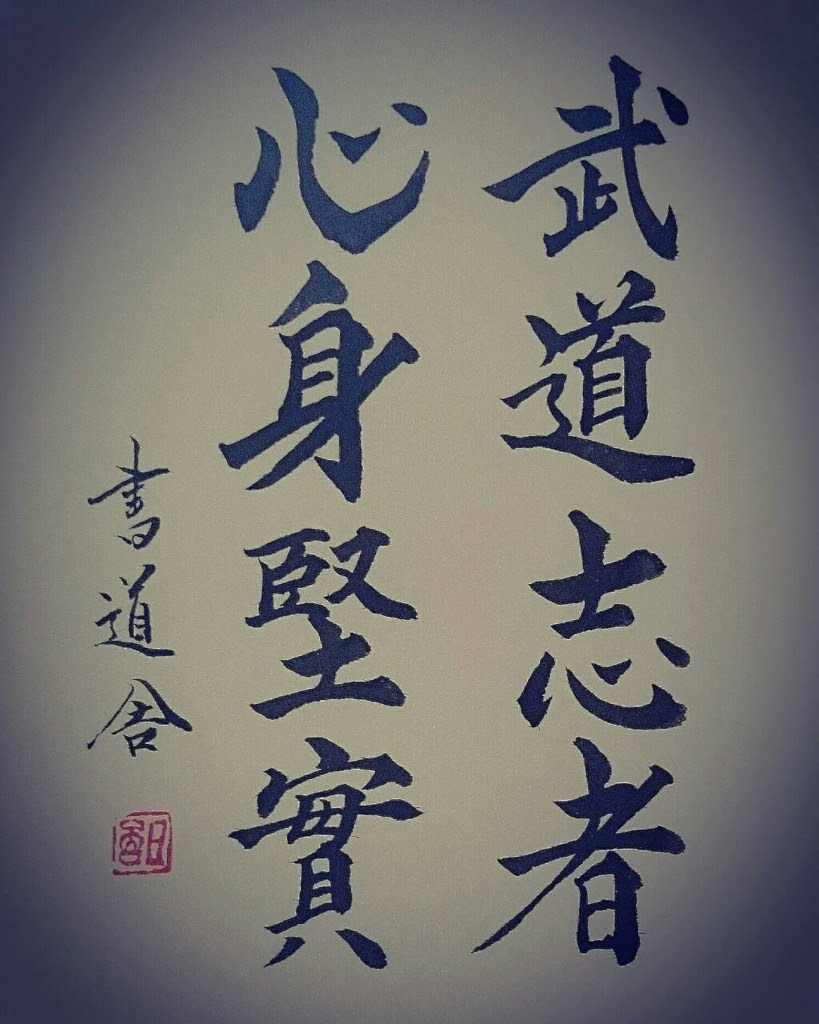 武道志者
心身堅實
書道舎